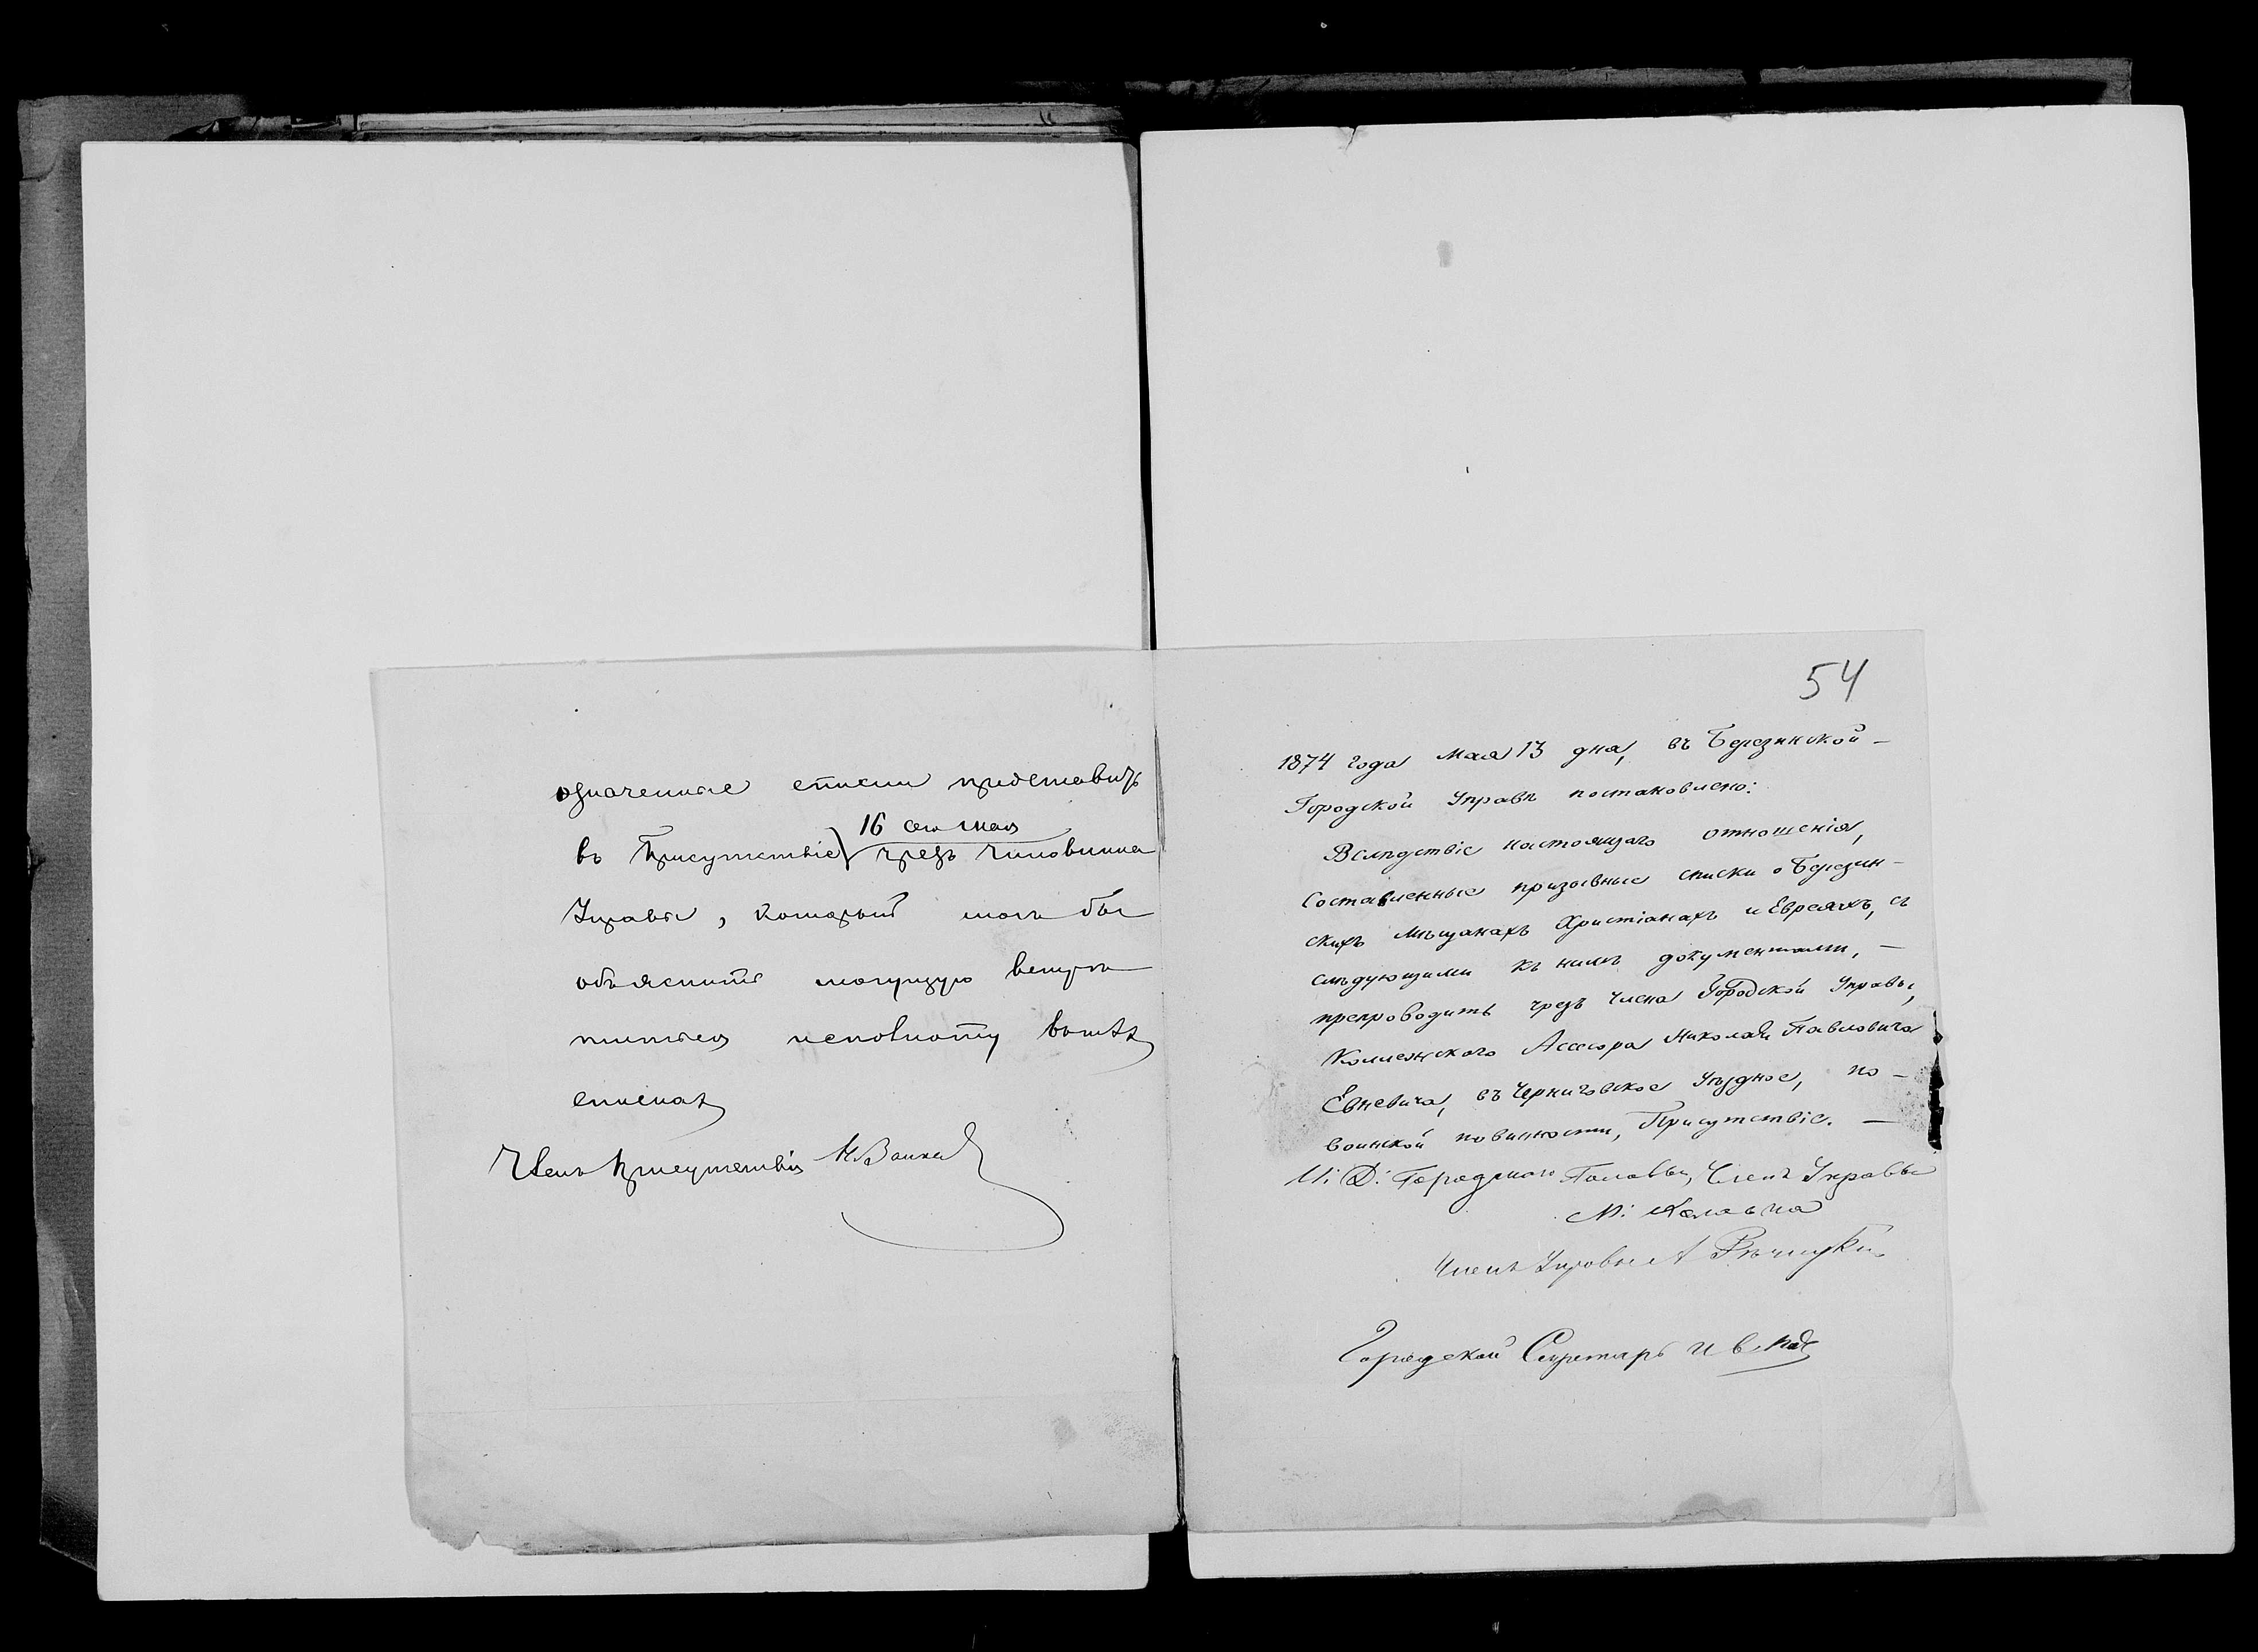 означенные списки представить
16 сего мая
въ Присутствіе чрезъ чиновника
Управы, который могъ бы
объяснить могущую встрѣ-
титься неполноту въ
спискахъ
Членъ Присутствія
54
1874 года Мая 13 дня, въ Березинской -
Городской Управѣ постановлено:
Вслѣдствіе настоящаго отношенія,
составленные призывные списки о Березин-
скихъ мѣщанахъ Христіанахъ и Евреяхъ, съ
слѣдующими къ нимъ документами, -
препроводить чрезъ Члена Городской Управы,
Коллежского Асессора Николая Павловича
Евневича, въ Черниговское Уѣздное, по -
воинской повинности, Присутствіе. -
И: Д: Городского Головы, Членъ Управы
М:
Членъ Управы А
Городской Секретарь